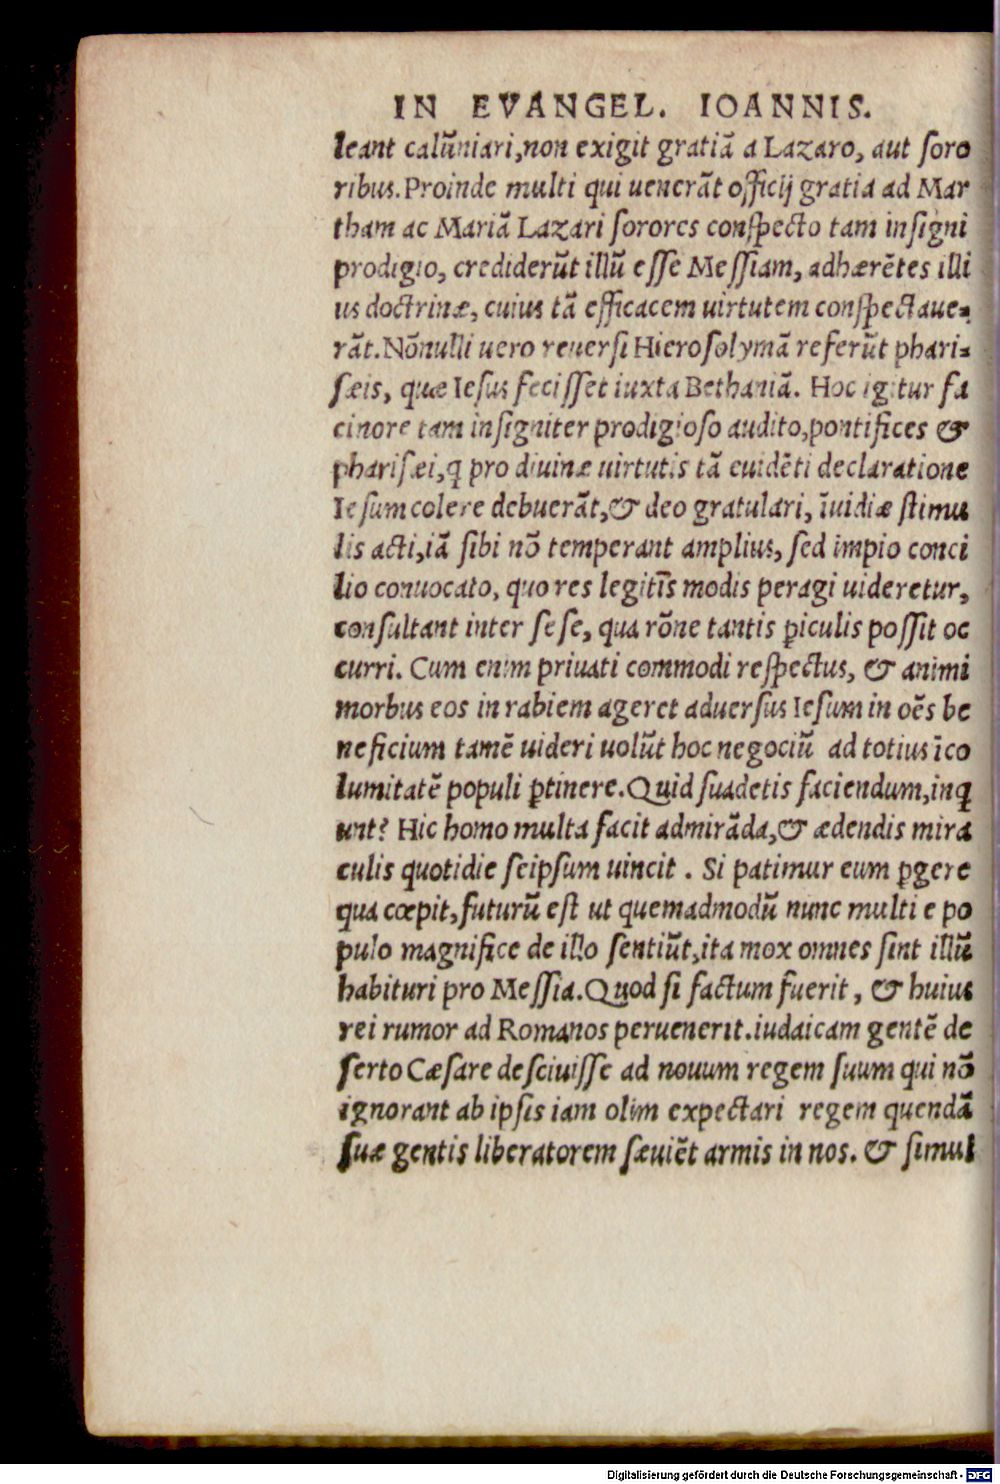 IN EVANGEL. IOANNIS.
leant calũniari, non exigit gratiã a Lazaro, aut ſoro
ribus. Proinde multi qui uenerãt officij gratia ad Mar
tham ac Mariã Lazari ſorores conſpecto tam inſigni
prodigio, crediderũt illũ eſſe Meſſiam, adhærẽtes illi
us doctrinæ, cuius tã efficacem uirtutem conſpectaue⸗
rãt. Nõnulli uero reuerſi Hieroſolymã referũt phari⸗
ſæis, quæ Ieſus feciſſet iuxta Bethaniã. Hoc igitur fa
cinore tam inſigniter prodigioſo audito, pontifices &
phariſæi, q̃ pro diuinæ uirtutis tã euidẽti declaratione
Ieſum colere debuerãt, & deo gratulari, ĩuidiæ ſtimu
lis acti, iã ſibi nõ temperant amplius, ſed impio conci
lio conuocato, quo res legitĩs modis peragi uideretur,
conſultant inter ſeſe, qua rõne tantis ꝑiculis poſſit oc
curri. Cum enim priuati commodi reſpectus, & animi
morbus eos in rabiem ageret aduerſus Ieſum in oẽs be
neficium tamẽ uideri uolũt hoc negociũ ad totius ĩco
lumitatẽ populi ꝑtinere. Quid ſuadetis faciendum, inq
unt? Hic homo multa facit admirãda, & ædendis mira
culis quotidie ſeipſum uincit. Si patimur eum ꝑgere
qua cœpit, futurũ eſt ut quemadmodũ nunc multi e po
pulo magnifice de illo ſentiũt, ita mox omnes ſint illũ
habituri pro Meſſia. Quod ſi factum fuerit, & huius
rei rumor ad Romanos peruenerit. iudaicam gentẽ de
ſerto Cæſare deſciuiſſe ad nouum regem ſuum qui nõ
ignorant ab ipſis iam olim expectari regem quendã
ſuæ gentis liberatorem ſæuiẽt armis in nos. & ſimul
Digitalisierung gefördert durch die Deutsche Forschungsgemeinschaft - DFG